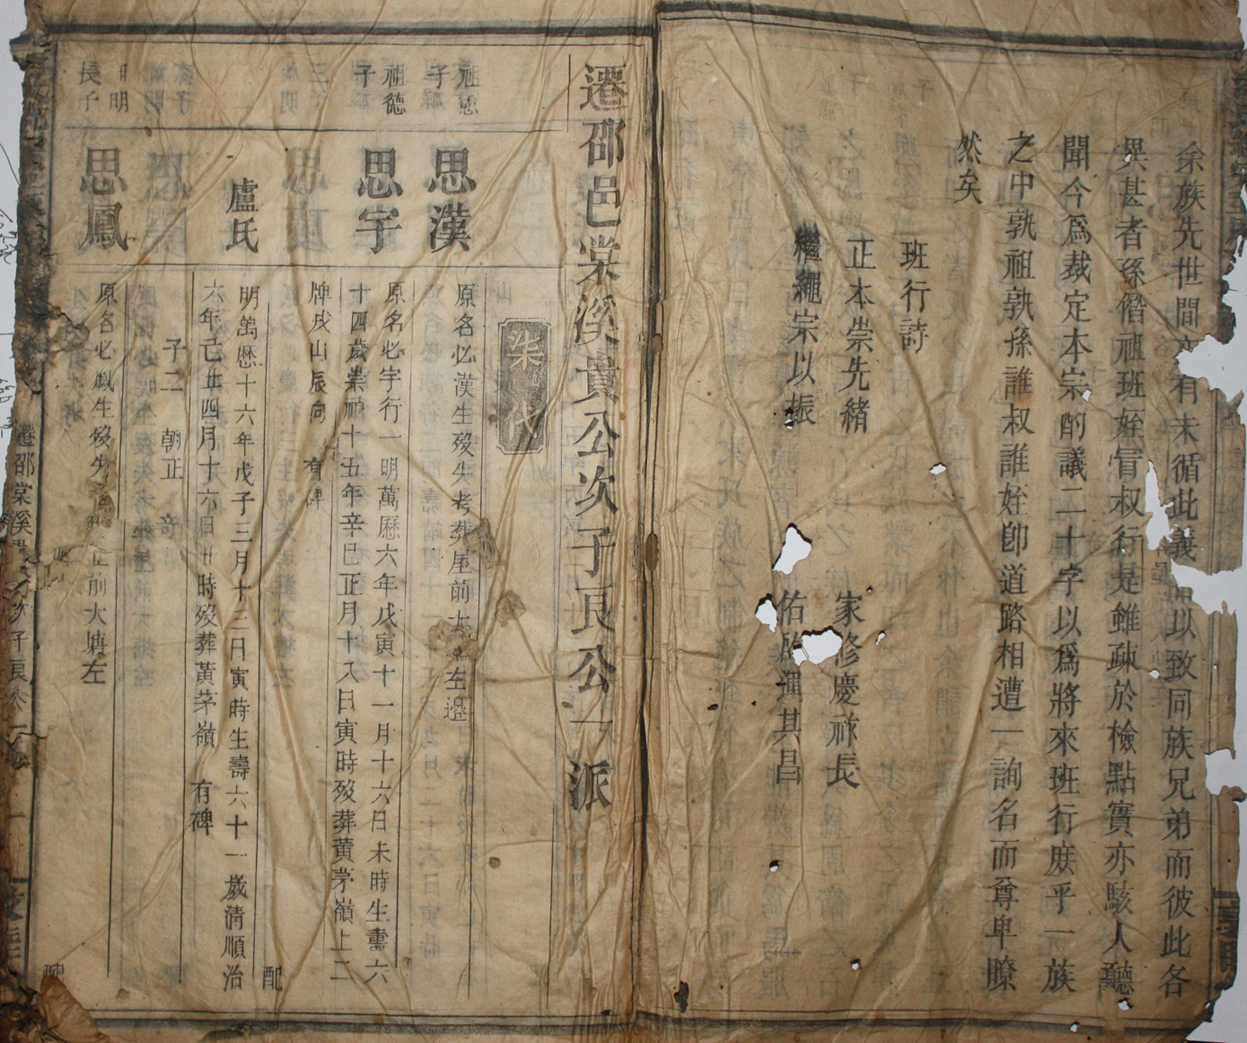 余族先世間有未循此義以致同族兄弟而彼此各
異甚者孫僭祖班姪冒叔行是雖疎於檢點實亦駭人聽
聞今爲裁定本宗酌議二十字以爲將來班行庶乎一族
之中孰祖孰孫誰叔誰姪卽道路相遭一詢名而尊卑瞭
然矣
班行詩
正本崇先緒 家修慶祚長
繼繩宗以振 佑啟運其昌
遷邵邑棠溪貴公次子良公一派
柒代
祖愚子
思漢
原名必漢生歿失考葬屋前大左邊
祖德子
思宇
原名必宇行一明萬歷六年戊寅十一月十六日未時生壽六
十四歲崇禎十五年辛巳正月十八日寅時歿葬黃茅嶺上二
牌戌山辰向 有碑
配
盧氏
明萬歷十六年戊子三月十二日寅時生壽六十一歲清順治
六年己丑四月十六日丑時歿葬黃茅嶺 有碑
子二 朝正 帝
明長子
思鳳
原名必鳳生歿失 正前大塘左
配
遷邵棠溪貴公次子良公一派